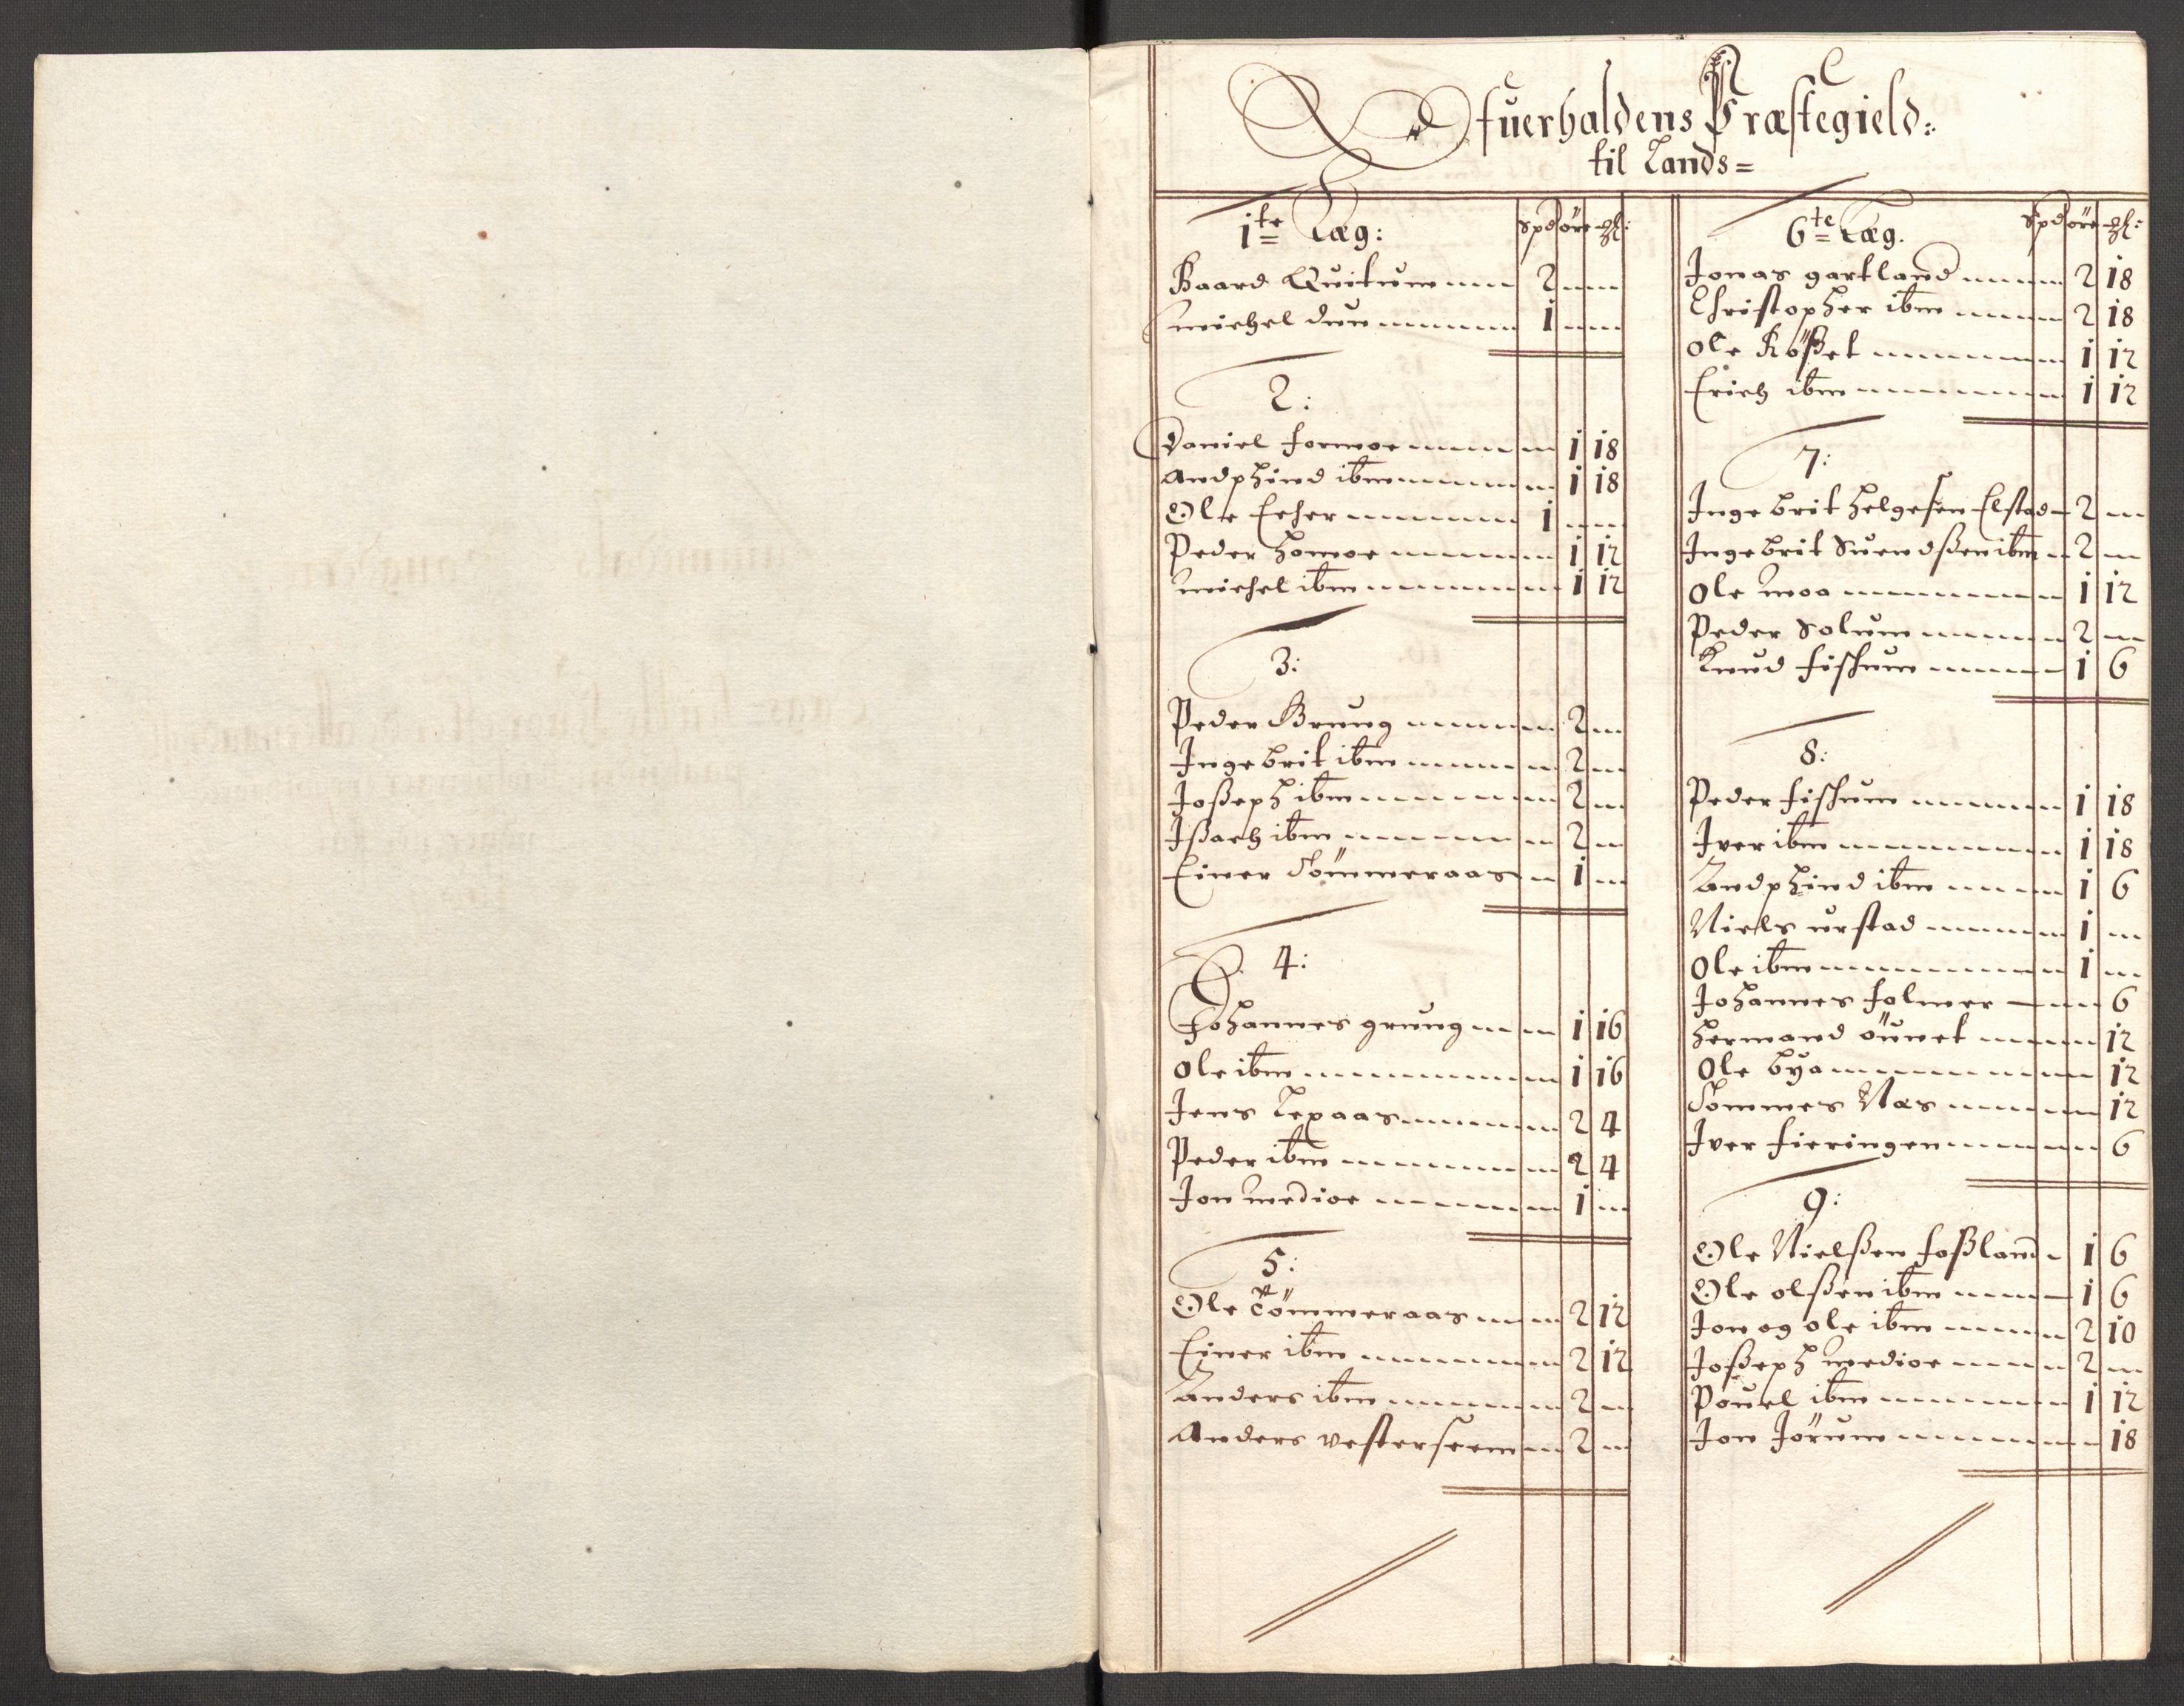 Ofuerhaldens Præstegield:
til Lands=
1te Læg: Spd öre ꝟl:
Baard Quitum 2
Michel dun 1
2:
Daniel formoe 1 18
Andphind ibm 1 18
Ole Eeher 1
Peder homoe 1 12
Michel ibm 1 12
3:
Peder Grung 2
Ingebrit ibm 2
Joßeph ibm 2
Ißach ibm 2
Einer Tömmeraas 1
4:
Johannes grung 1 16
Ole ibm 1 16
Jens Lexaas 2 4
Peder ibm 2 4
Jon Medioe 1
5:
Ole Tömmeraas 2 12
Einer ibm 2 12
Anders ibm 2
Anders Vesterseem 2
6te Læg. Spd öre
Jonas gartland 2 18
Christopher ibm 2 18
Ole Rößet 1 12
Erich ibm 1 12
7:
Ingebrit Helgesen Elstad 2
Ingebrit Suendßen ibm 2
Ole Moa 1 12
Peder Solum 2
Knud fischum 1 6
8:
Peder fischum 1 18
Iver ibm 1 18
Andphind ibm 1 6
Niels urstad 1
Ole ibm 1
Johannes folmer 6
Hermand öünet 12
Ole bya 12
Tommes Næs 12
Iver fieringen 6
9:
Ole Nielßen foßland 1 6
Ole olßen ibm 1 6
Jon og ole ibm 2 10
Joßeph Medioe 2
Pouel ibm 1 12
Jon Jörum 18